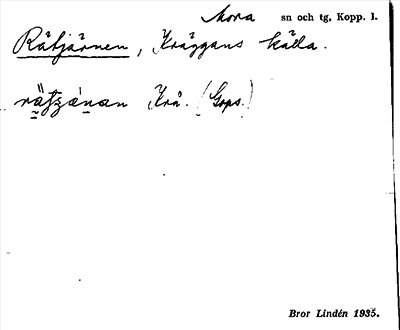 Mora sn och tg. Kopp. l.
Råtjärnen, Kråggans källa.
Krå. (Gops.)
Bror Lindén 1935.